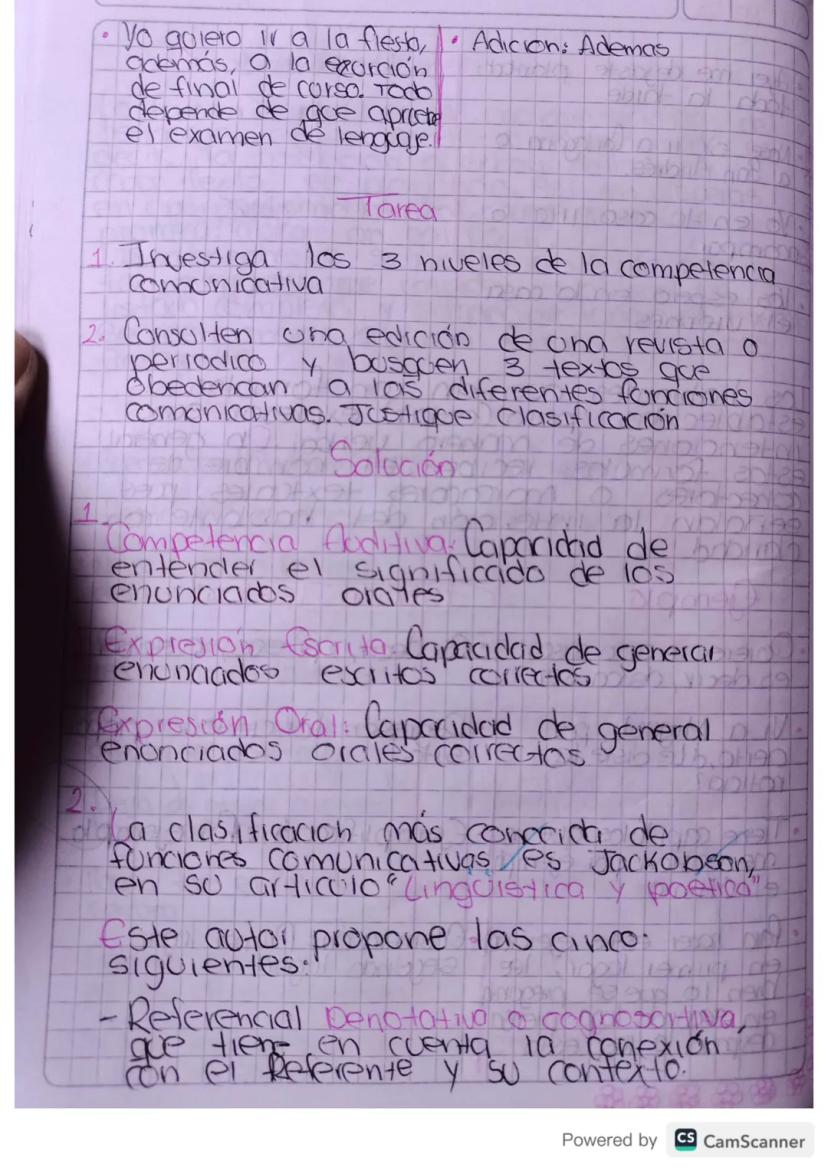 • Yo quiero ir a la fiesta,
además, a la excursión
de final de curso. Todo
depende de que apruebe
el examen de lenguaje.
• Adicion: Ademas
Tarea
1. Investiga los 3 niveles de la competencia
comunicativa
2. Consulten una edición de una revista o
periodico y busquen 3 textos que
Obedencan a las diferentes funciones
comunicativas. Justique clasificación
Solución
1.
Competencia Auditiva: Capacidad de
entender el significado de los
enunciados orales
Expresión Escrita: Capacidad de generar
enunciados escritos correctos
Expresión Oral: Capacidad de general
enunciados orales correctos
2.
La clasificación más conocida de
funciones comunicativas es Jackobson,
en su articulo "Lingüistica y poetica"
Este autor propone las cinco
siguientes:
- Referencial Denotativa o cognoscitiva,
que tiene en cuenta la conexión
con el Referente y su contexto.
Powered by CS CamScanner